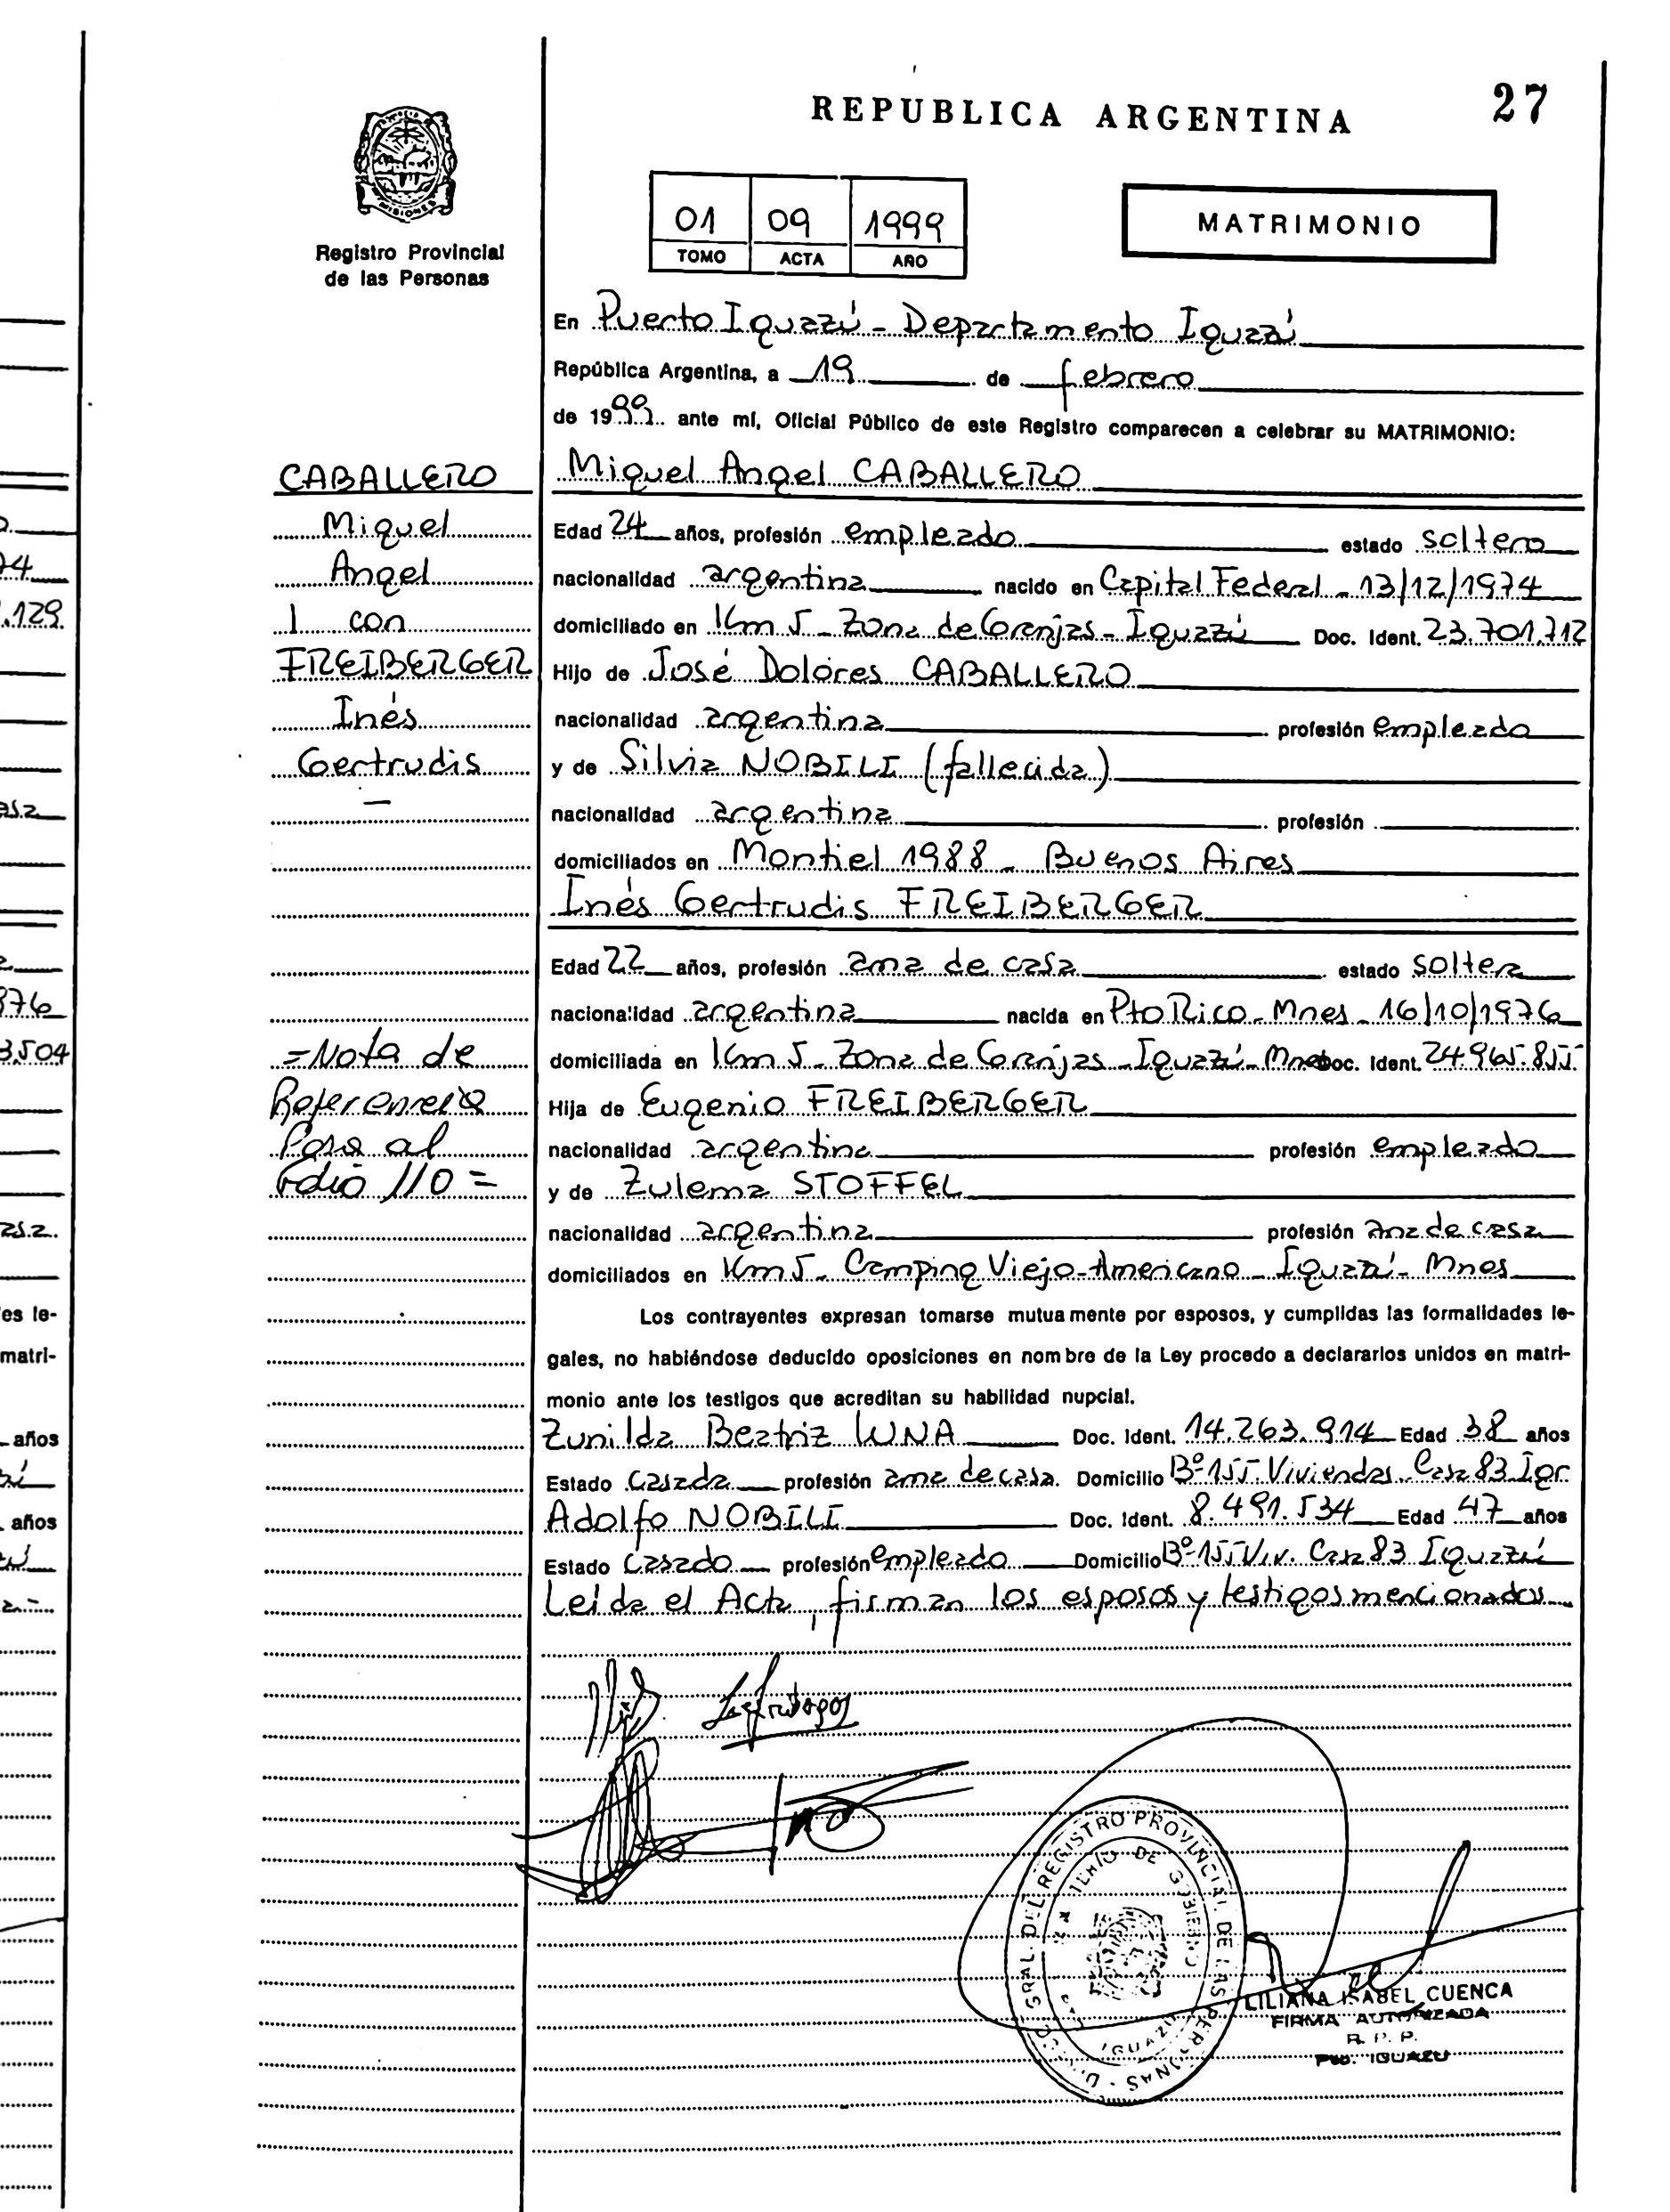 27
REPUBLICA ARGENTINA
MISIONES
Registro Provincial
de las Personas
01 09 1999
TOMO ACTA AÑO
MATRIMONIO
En Puerto Iguazú - Departamento Iguazú
República Argentina, a 19 de febrero
de 1999 ante mí, Oficial Público de este Registro comparecen a celebrar su MATRIMONIO:
CABALLERO
Miguel
Angel
con
FREIBERGER
Inés
Gertrudis
Miguel Angel CABALLERO
Edad 24 años, profesión empleado estado soltero
nacionalidad argentina nacido en Capital Federal - 13/12/1974
domiciliado en Km 5 - Zona de Granjas - Iguazú Doc. Ident. 23.701.712
Hijo de José Dolores CABALLERO
nacionalidad argentina profesión empleado
y de Silvia NOBILI (fallecida)
nacionalidad argentina profesión
domiciliados en Montiel 1988 - Buenos Aires
Inés Gertrudis FREIBERGER
Edad 22 años, profesión ama de casa estado soltera
nacionalidad argentina nacida en Pto Rico - Mnes - 16/10/1976
domiciliada en Km 5 - Zona de Granjas - Iguazú - Mnes Doc. Ident. 24.965.855
Hija de Eugenio FREIBERGER
nacionalidad argentina profesión empleado
y de Zulema STOFFEL
nacionalidad argentina profesión ama de casa
domiciliados en Km 5 - Camping Viejo-Americano - Iguazú - Mnes
= Nota de
Referencia
Pasa al
folio 110 =
Los contrayentes expresan tomarse mutuamente por esposos, y cumplidas las formalidades le-
gales, no habiéndose deducido oposiciones en nombre de la Ley procedo a declararlos unidos en matri-
monio ante los testigos que acreditan su habilidad nupcial.
Zunilda Beatriz LUNA Doc. Ident. 14.263.914 Edad 38 años
Estado casada profesión ama de casa. Domicilio Bº 155 Viviendas Casa 83 Igr
Adolfo NOBILI Doc. Ident. 8.491.534 Edad 47 años
Estado casado profesión empleado Domicilio Bº 155 Viv. Casa 83 Iguazú
Leída el Acta, firman los esposos y testigos mencionados
REGISTRO PROVINCIAL DE LAS PERSONAS
DE GOBIERNO
IGUAZU
LILIANA ISABEL CUENCA
FIRMA AUTORIZADA
R. P. P.
Pto. IGUAZU
129
976
3.504
es le-
matri-
años
años